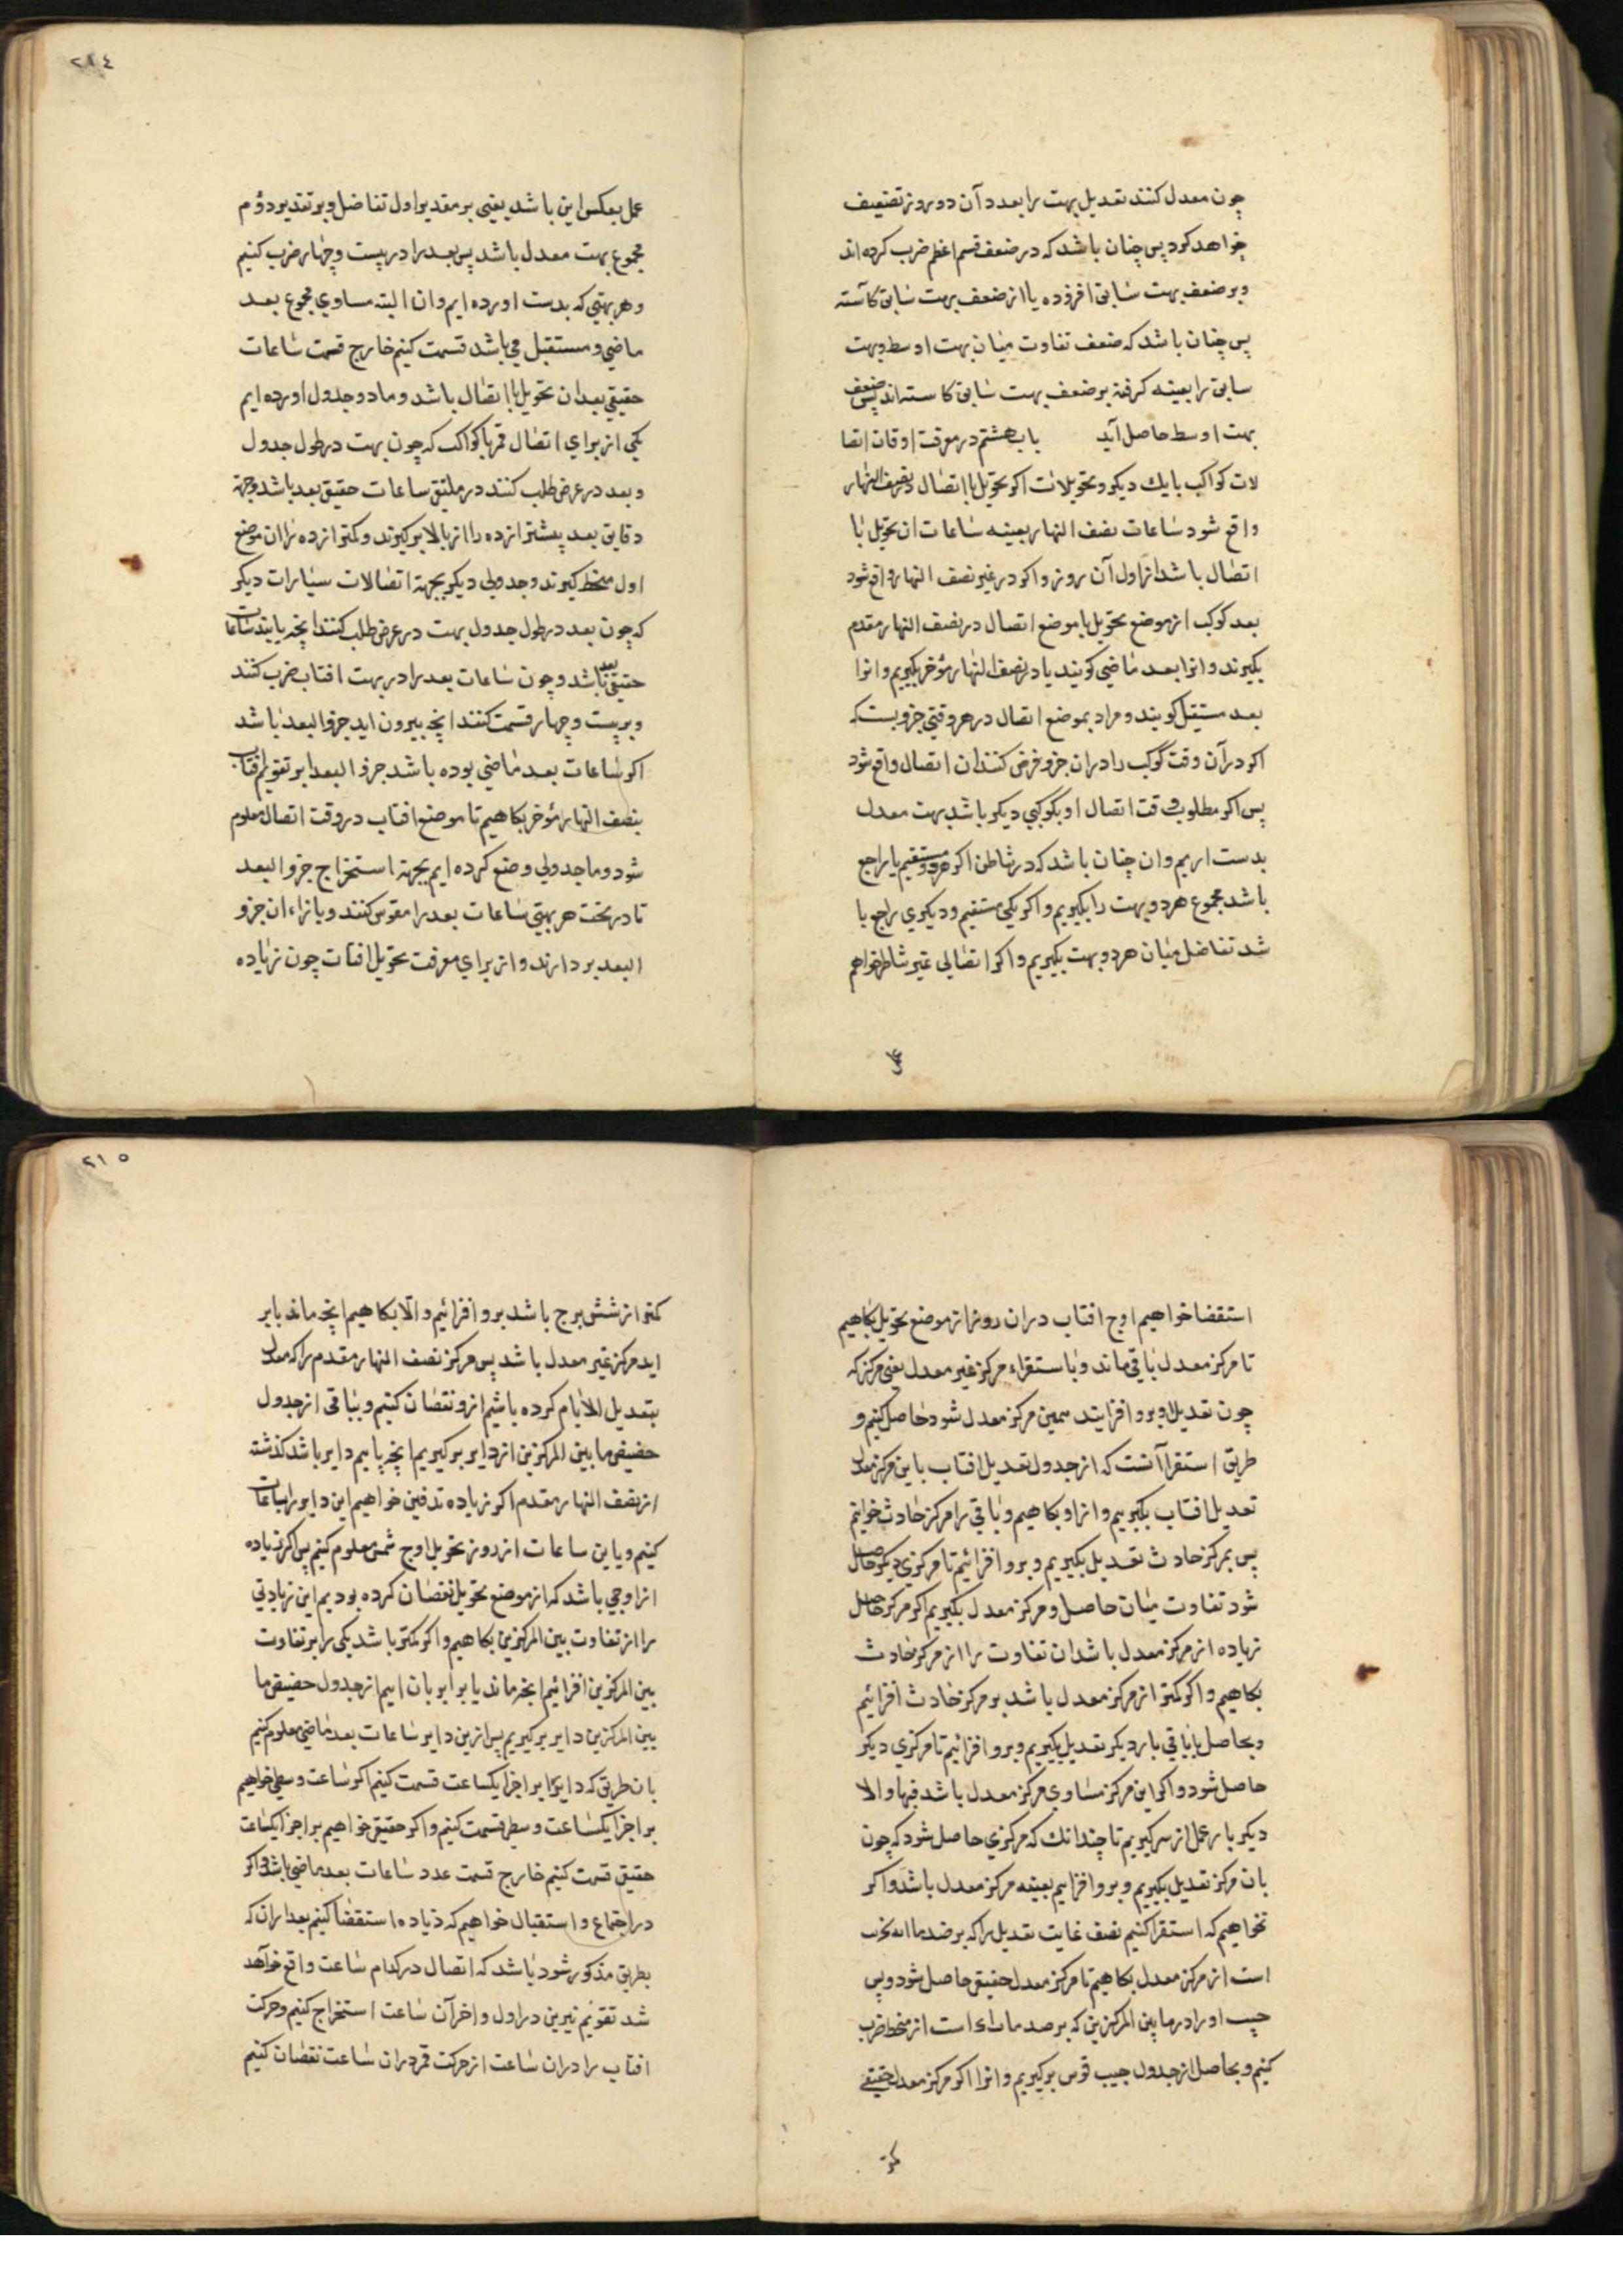 چون معدل کنند تعدیل بهت را بعدد آن دو روز تضعیف
خواهد کرد پس چنان باشد که در ضعف قسم اعظم ضرب کرده اند
و بر ضعف بهت سابق افزوده یا از ضعف بهت سابق کاسته
پس چنان باشد که ضعف تفاوت میان بهت اوسط و بهت
سابق را بعینه گرفته بر ضعف بهت سابق کاسته اند پس ضعف
بهت اوسط حاصل آید باب هشتم در معرفت اوقات اتصا
لات کواکب با یك دیگر و تحویلات اگر تحویل یا اتصال در نصف النهار
واقع شود ساعات نصف النهار بعینه ساعات ان تحویل یا
اتصال باشد از اول آن روز و اگر در غیر نصف النهار واقع شود
بعد کوکب از موضع تحویل یا موضع اتصال در نصف النهار مقدم
بگیرند و انرا بعد ماضی گویند یا در نصف النهار مؤخر بگیریم و انرا
بعد مستقبل گویند و مراد بموضع اتصال در هر وقتی جزویست که
اگر در آن وقت کوکب را در ان جزو فرض کنند ان اتصال واقع شود
پس اگر مطلوب وقت اتصال او بکوکبی دیگر باشد بهت معدل
بدست اریم وان چنان باشد که در تناظر اگر هر دو مستقیم یا راجع
باشد مجموع هر دو بهت را بگیریم و اگر یکی مستقیم و دیگری راجع با
شد تفاضل میان هر دو بهت بگیریم و اگر اتصالی غیر تناظر خواهم
عمل
٢١٤
عمل بعکس این باشد یعنی بر مقدیر اول تفاضل و بر تقدیر دؤم
مجموع بهت معدل باشد پس بعد را در بیست و چهار ضرب کنیم
و هر بهتی که بدست اورده ایم وان البته مساوی مجموع بعد
ماضی و مستقبل می باشد قسمت کنیم خارج قسمت ساعات
حقیقی بعد ان تحویل یا اتصال باشد و ما دو جدول اورده ایم
یکی از برای اتصال قمر با کواکب که چون بهت در طول جدول
و بعد در عرض طلب کنند در ملتقی ساعات حقیقی بعد باشد وجهة
دقایق بعد بیشتر از ده را از بالا بر گیرند و کمتر از ده را ان موضع
اول منحط گیرند و جدولی دیگر بجهة اتصالات سیارات دیگر
که چون بعد در طول جدول بهت در عرض طلب کنند انچه یابند ساعات
حقیقی بعد باشد و چون ساعات بعد را در بهت افتاب ضرب کنند
و بر بیست و چهار قسمت کنند انچه بیرون اید جزو البعد باشد
اگر ساعات بعد ماضی بوده باشد جزو البعد ابر تقویم افتاب
بنصف النهار مؤخر بکاهیم تا موضع افتاب در وقت اتصال معلوم
شود و ما جدولی وضع کرده ایم بجهة استخراج جزو البعد
تا در تحت هر بهتی ساعات بعد را مقوس کنند و بازاء ان جزو
البعد بر دارند و از برای معرفت تحویل افتاب چون زیاده
استقضا خواهیم اوج افتاب در ان روز از موضع تحویل بکاهیم
تا مرکز معدل باقی ماند و باستقراء مرکز غیر معدل یعنی مرکز که
چون تعدیل او برو افزایند همین مرکز معدل شود حاصل کنیم و
طریق استقرا آنست که از جدول تعدیل افتاب باین مرکز معدل
تعدیل افتاب بگیریم و از او بکاهیم و باقی را مرکز حادث خوانیم
پس بمرکز حادث تعدیل بگیریم و برو افزائیم تا مرکزی دیگر حاصل
شود تفاوت میان حاصل و مرکز معدل بگیریم اگر مرکز حاصل
زیاده از مرکز معدل باشد ان تفاوت را از مرکز حادث
بکاهیم و اگر کمتر از مرکز معدل باشد بر مرکز حادث افزائیم
و بحاصل یا باقی بار دیگر تعدیل بگیریم و برو افزائیم تا مرکزی دیگر
حاصل شود و اگر این مرکز مساوی مرکز معدل باشد فبها والا
دیگر بار عمل از سر گیریم تا چندانك که مرکزی حاصل شود که چون
بان مرکز تعدیل بگیریم و برو افزاییم بعینه مرکز معدل باشد و اگر
نخواهیم که استقرا کنیم نصف غایت تعدیل را که بر صد
است از مرکز معدل بکاهیم تا مرکز معدل حقیقی حاصل شود و پس
جیب او را در ما بین المرکزین که بر صد است از منحط ضرب
کنیم و بحاصل از جدول جیب قوس بر گیریم و انرا اگر مرکز معدل حقیقی
کمتر
٢١٥
کمتر از شش برج باشد برو افزائیم والا بکاهیم انچه ماند یا بر
اید مرکز غیر معدل باشد پس مرکز نصف النهار مقدم را که معدل
بتعدیل الایام کرده باشیم ازو نقصان کنیم و بباقی از جدول
حضیض ما بین المرکزین از دایر بر گیریم انچه یابیم دایر باشد گذشته
از نصف النهار مقدم اگر زیاده تدقیق خواهیم این دایر را ساعات
کنیم و باین ساعات از روز تحویل اوج شمس معلوم کنیم پس اگر زیاده
از اوجی باشد که از موضع تحویل نقصان کرده بودیم این زیادتی
را از تفاوت بین المرکزین بکاهیم و اگر کمتر باشد یکی را بر تفاوت
بین المرکزین افزائیم انچه ماند یا بر اید بان از جدول حضیض ما
بین المرکزین دایر بر گیریم پس ازین دایر ساعات بعد ماضی معلوم کنیم
بان طریق که دایر را بر اجزا یکساعت قسمت کنیم اگر ساعت وسطی خواهیم
بر اجزا یکساعت وسطی قسمت کنیم و اگر حقیقی خواهیم بر اجزا یکساعت
حقیقی قسمت کنیم خارج قسمت عدد ساعات بعد ماضی باشد و اگر
در اجتماع و استقبال خواهیم که زیاده استقضا کنیم بعد از ان که
بطریق مذکور شود باشد که اتصال در کدام ساعت واقع خواهد
شد تقویم نیرین در اول و اخر آن ساعت استخراج کنیم و حرکت
افتاب را در ان ساعت از حرکت قمر در ان ساعت نقصان کنیم